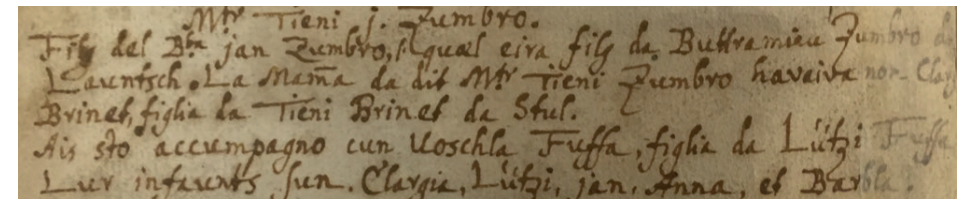 Mtr Tieni j. Zumbro.
Filg del Btn jan Zumbro, il quæl eira filg da Buttramieu Zumbro da
Lavuntsch. La Mam̄a da dit Mtr Tieni Zumbro havaiva nom Clar
Brinet, figlia da Tieni Brinet da Stul.
Ais sto accumpagno cun Uoschla Fuffa, figlia da Lützi Fuffa
Lur infaunts sun. Clargia, Lützi, jan, Anna, et Barbla.